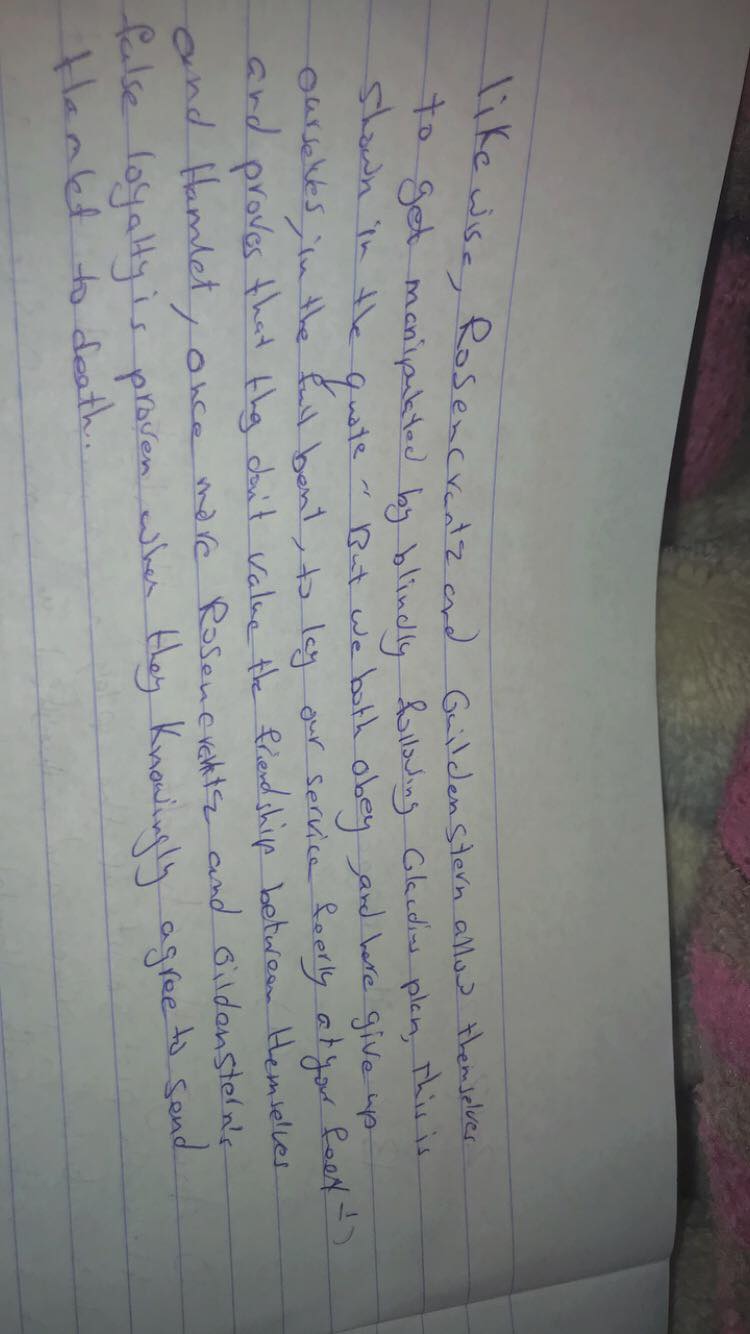 likewise, Rosencrantz and Guildenstern allow themselves
to get manipulated by blindly following Claudius plan, This is
shown in the quote " But we both obey, and here give up
ourselves, in the full bent, to lay our service feerly at your feet")
and proves that they don't value the friendship between themselves
and Hamlet, once more Rosencrantz and Gildenstern's
false loyalty is proven when they Knowingly agree to send
Hamlet to death.